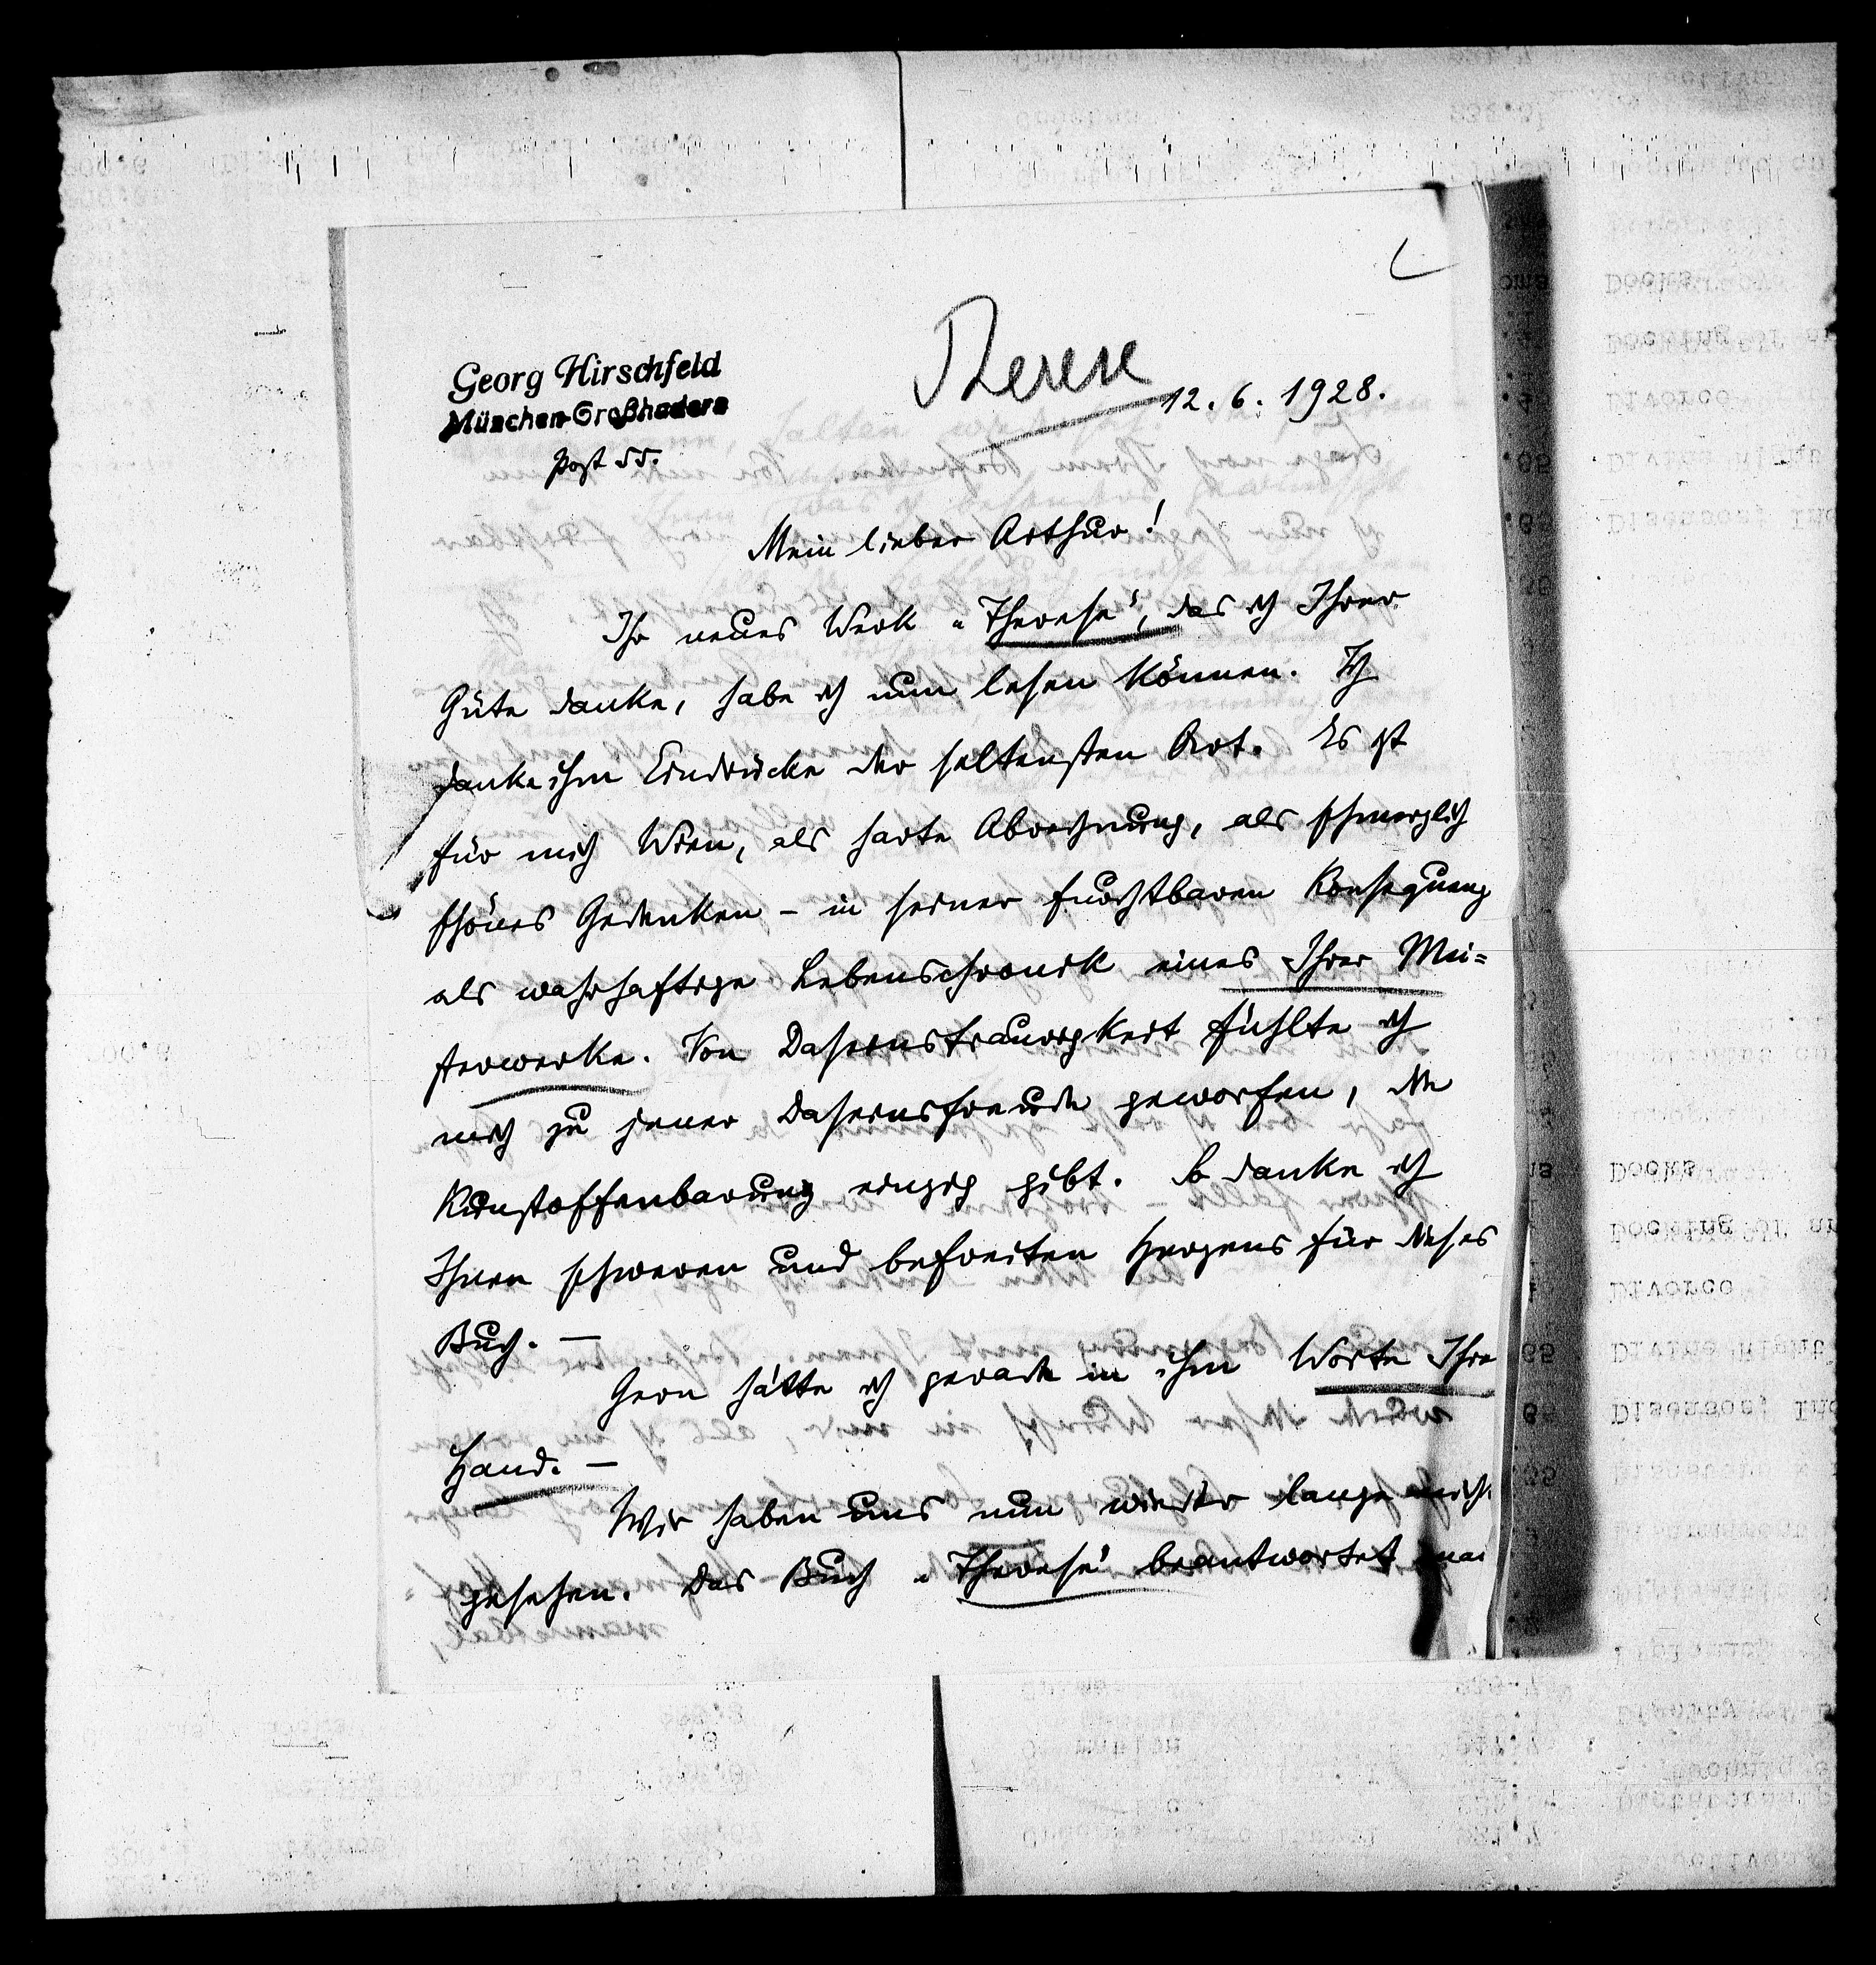 Therese
Georg Hirschfeld
München-Großhadern
Post 55.
12. 6. 1928.
Mein lieber Arthur!
Ihr neues Werk „Therese“, das ich Ihrer
Güte danke, habe ich nun lesen können. Ich
danke ihm Eindrücke der seltensten Art. Es ist
für mich Wien, als harte Abrechnung, als schmerzlich
schönes Gedenken – in seiner furchtbaren Konsequenz
als wahrhaftige Lebenschronik eines Ihrer Mei=
sterwerke. Von Daseinstraurigkeit fühlte ich
mich zu jener Daseinsfreude geworfen, die
Kunstoffenbarung einzig gibt. So danke ich
Ihnen schweren und befreiten Herzens für dieses
Buch. —
Gern hätte ich gerade in ihm Worte Ihrer
Hand. —
Wir haben uns nun wieder lange nicht
gesehen. Das Buch „Therese“ beantwortet